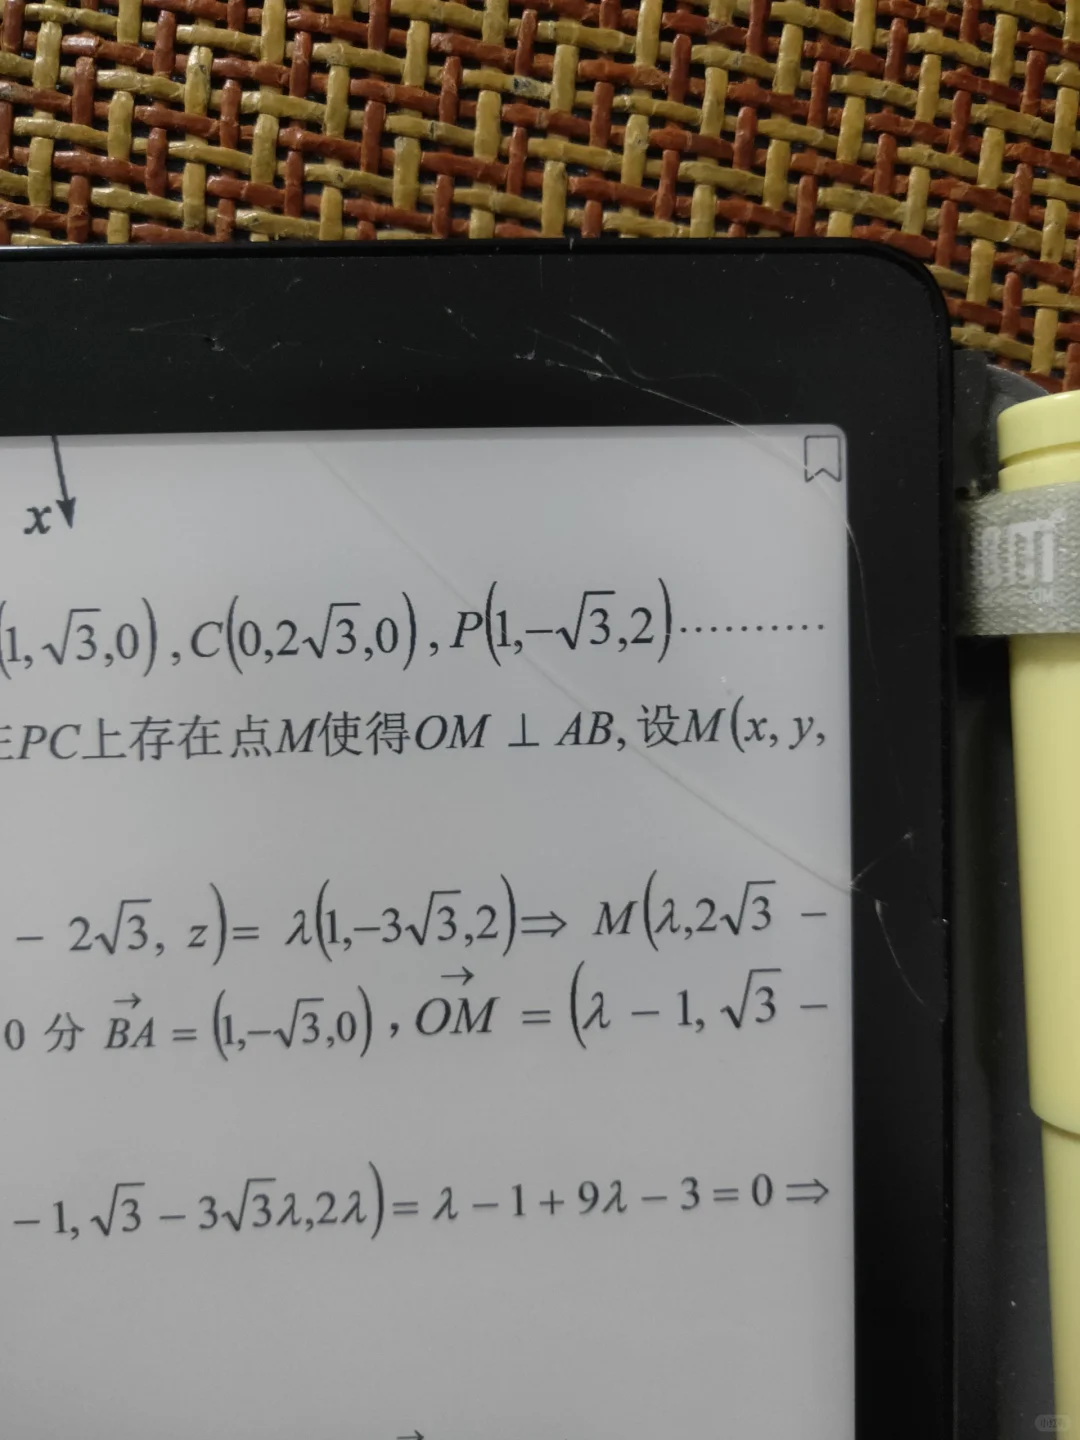 x
(1,√3,0),C(0,2√3,0),P(1,−√3,2)··········
PC上存在点M使得OM ⊥ AB,设M(x, y,
− 2√3, z)= λ(1,−3√3,2)⇒ M(λ,2√3 −
0 分 BA⃗ = (1,−√3,0), OM⃗ = (λ − 1, √3 −
− 1, √3 − 3√3λ,2λ)= λ − 1 + 9λ − 3 = 0 ⇒
小红书